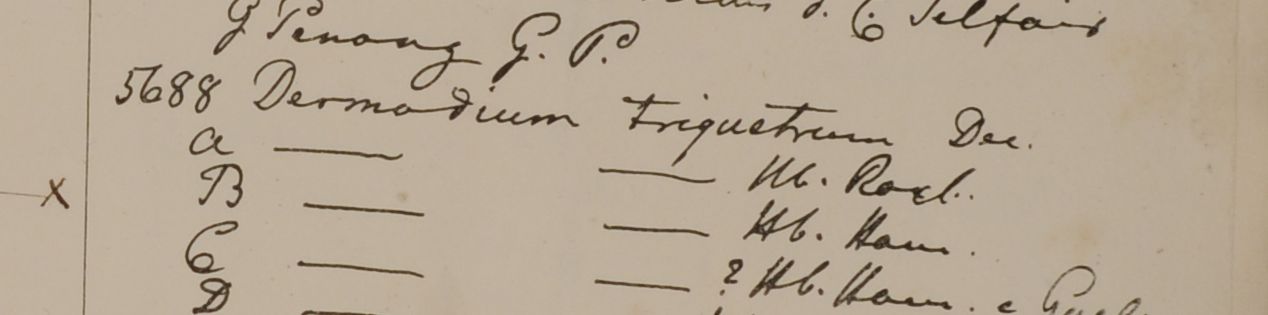 d. C. Telfair
G Penang G. P.
5688 Dermodium triquetrum Dec.
a — — Hb. Roxl.
B — — Hb. Ham.
C — — ? Hb. Ham. e
D —
X